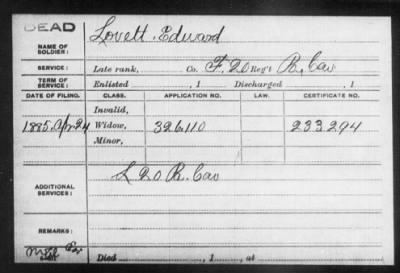 DEAD
NAME OF SOLDIER: Lovett, Edward
SERVICE: Late rank, Co. F, 20 Reg't Pa. Cav
TERM OF SERVICE: Enlisted , 1 Discharged , 1
DATE OF FILING. CLASS. APPLICATION NO. LAW. CERTIFICATE NO.
Invalid,
1885, Apr 24 Widow, 326,110 233,294
Minor,
ADDITIONAL SERVICES: L 20 Pa. Cav
REMARKS:
Died , 1 , at